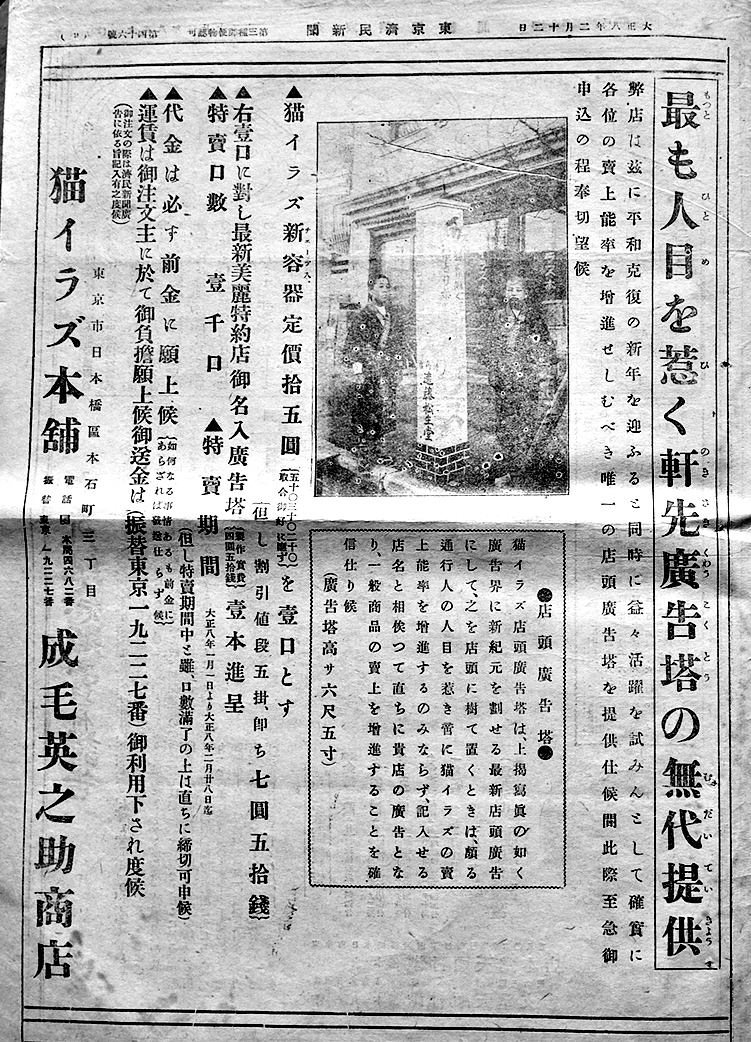 大正八年二月十二日
東京濟民新聞
第三種郵便物認可
第四十六號
最も人目を惹く軒先廣告塔の無代提供
弊店は玆に平和克復の新年を迎ふると同時に益々活躍を試みんとして確實に
各位の賣上能率を增進せしむべき唯一の店頭廣告塔を提供仕候間此際至急御
申込の程奉切望候
近藤松壽堂
●店頭廣告塔●
猫イラズ店頭廣告塔は、上揭寫眞の如く
廣告界に新紀元を劃せる最新店頭廣告
にして、之を店頭に樹て置くときは、頗る
通行人の人目を惹き啻に猫イラズの賣
上能率を增進するのみならず、記入せる
店名と相俟つて直ちに貴店の廣告とな
り、一般商品の賣上を增進することを確
信仕り候
(廣告塔高サ六尺五寸)
▲猫イラズ新容器定價拾五圓(五十〇三十〇二十〇取合御好に應ず)を壹口とす
但し割引値段五掛卽ち七圓五拾錢
▲右壹口に對し最新美麗特約店御名入廣告塔(製作實費四圓五拾錢)壹本進呈
▲特賣口數 壹千口 ▲特賣期間 大正八年一月一日より大正八年二月廿八日迄
(但し特賣期間中と雖、口數滿了の上は直ちに締切可申候)
▲代金は必す前金に願上候(如何なる事情あるも前金にあらざれば發送仕らず候)
▲運賃は御注文主に於て御負擔願上候御送金は(振替東京一九二二七番)御利用下され度候
(御注文の際は濟民新聞廣告に依る旨記入有之度候)
東京市日本橋區本石町三丁目
猫イラズ本舖 成毛英之助商店
電話 本局四六八二番
振替東京一九二二七番